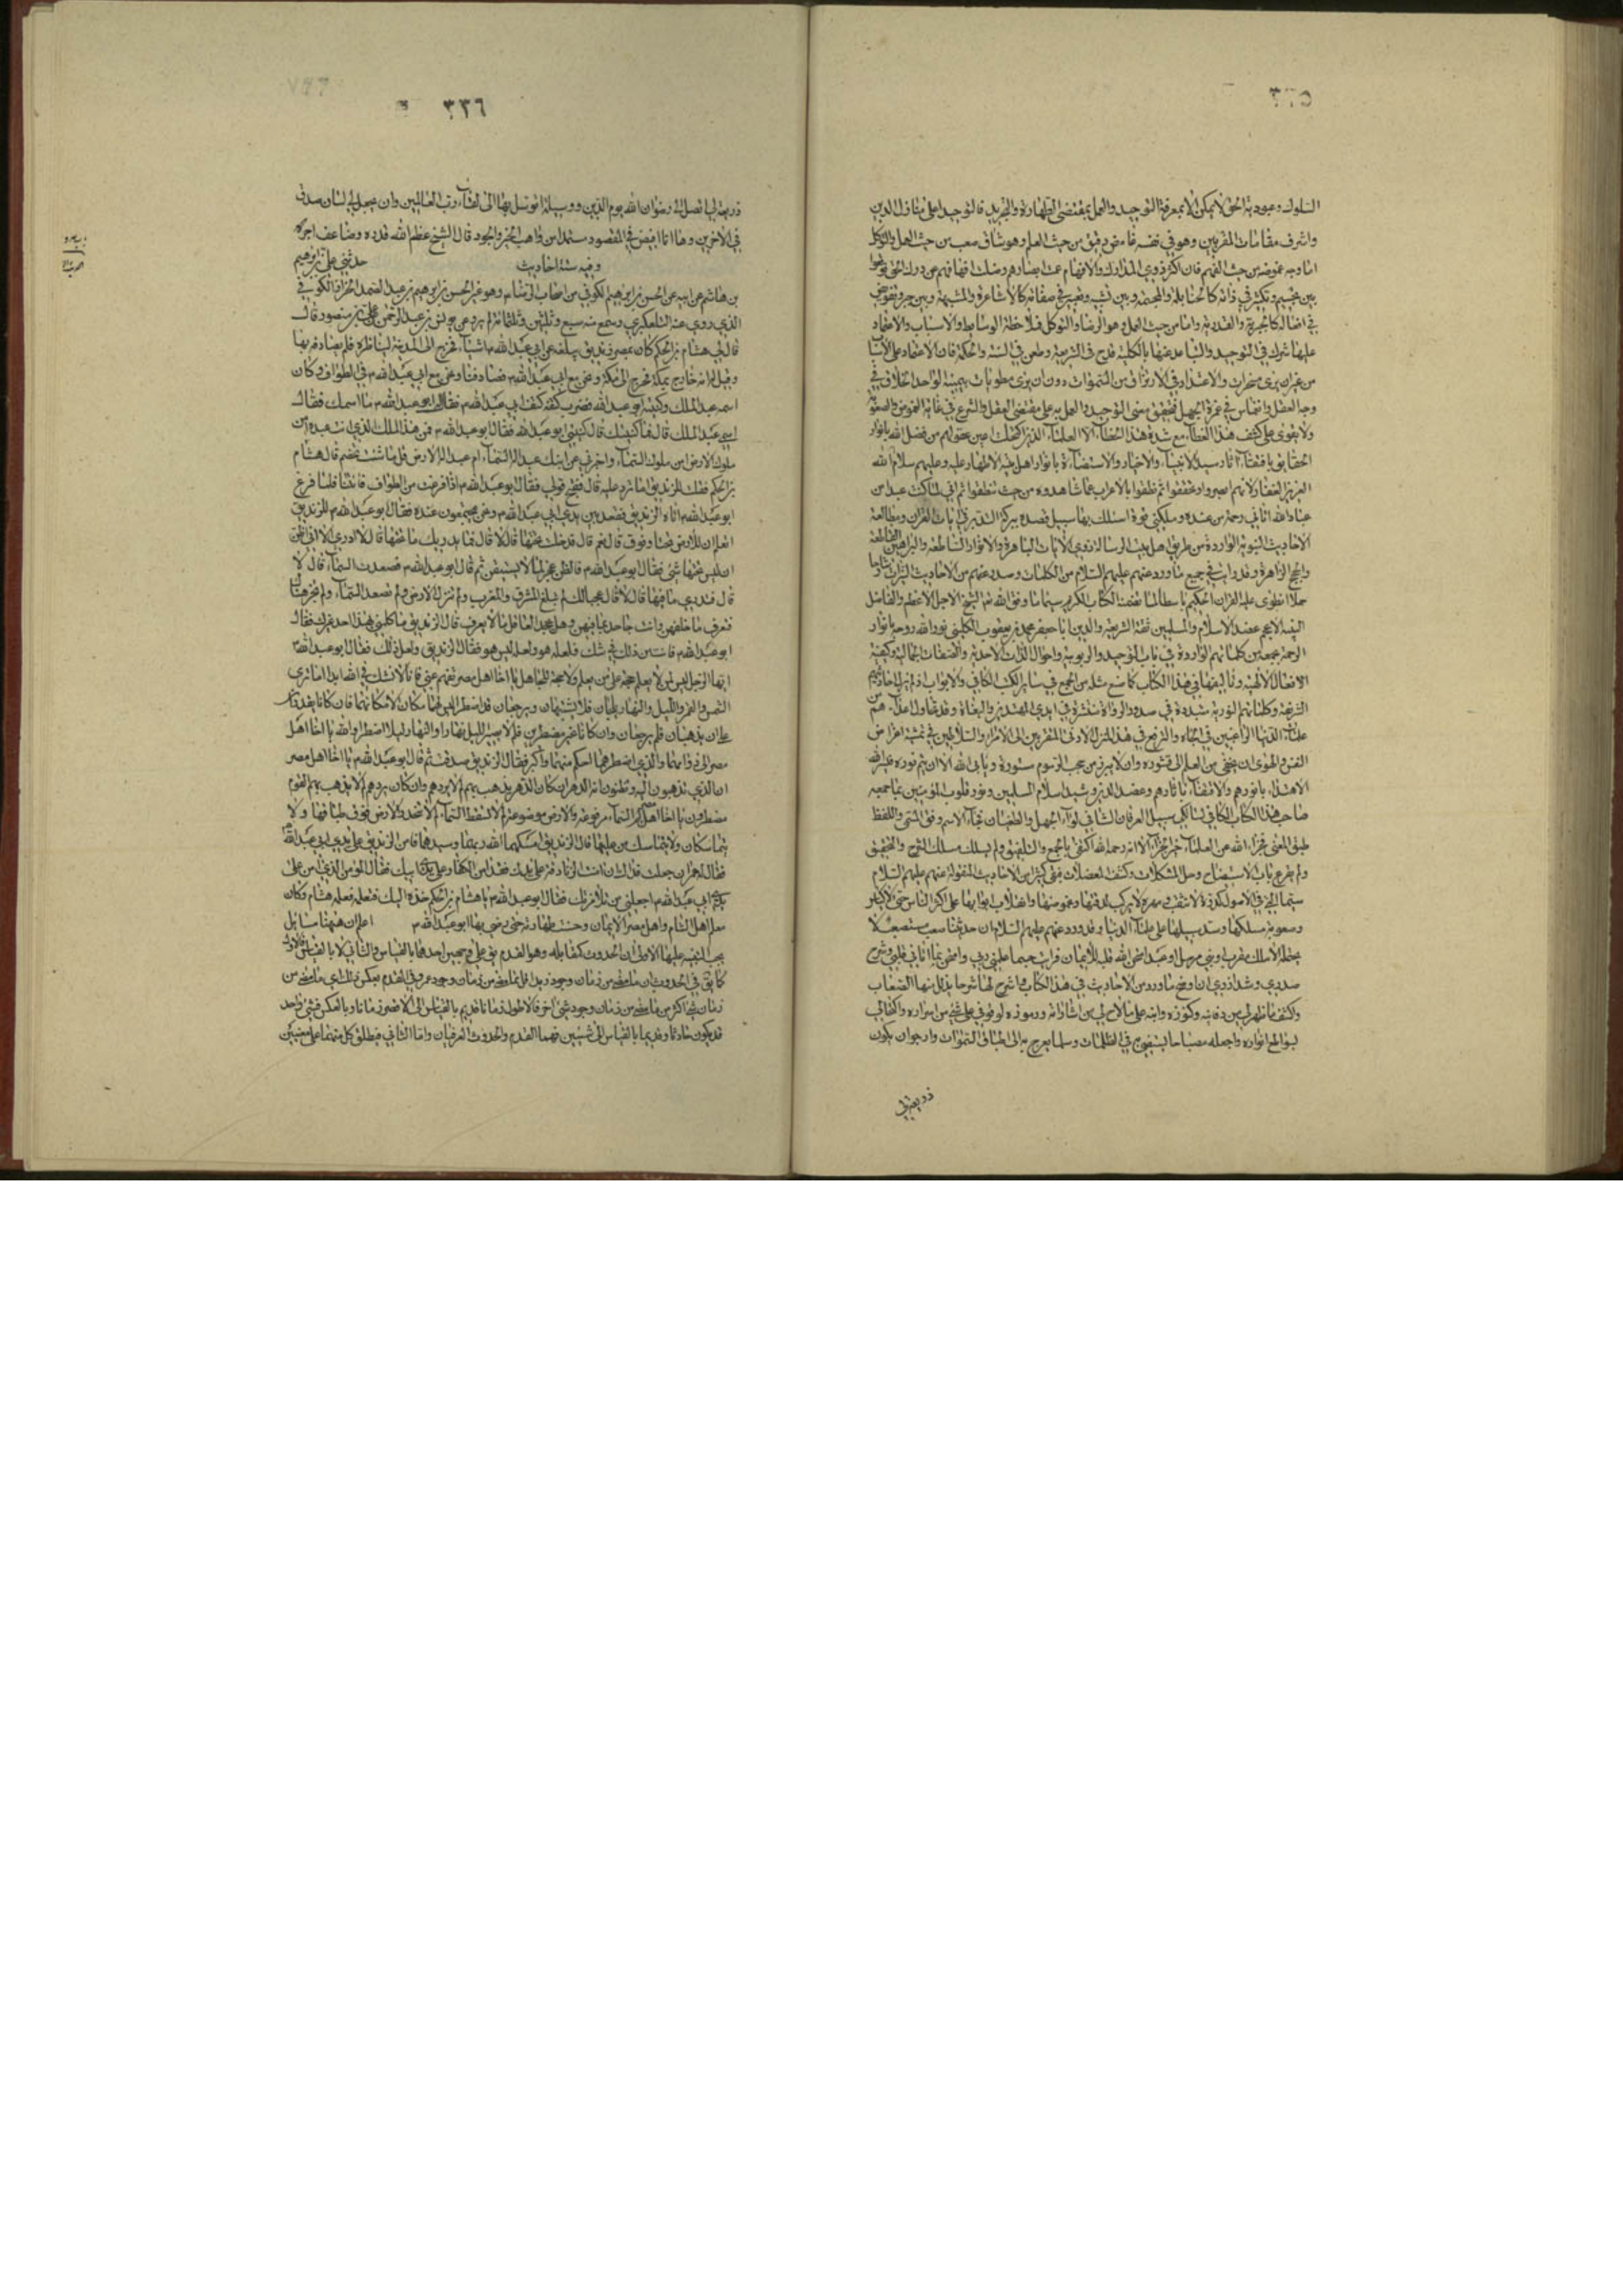 ٣٣٥
السلوك وعبودية الحق لا يمكن الا بمعرفة التوحيد والعمل بمقتضى الطهارة والتجريد فالتوحيد اعلى منازل الدين
واشرف مقامات المقربين وهو في نفسه غامض دقيق من حيث العلم وهو شاق صعب من حيث العمل والتوكل
اما وجه غموضه من حيث الفهم فان اكثر ذوي المدارك والافهام عمت ابصارهم وضلت افهامهم عن درك الحق فوقعوا
بين تجسيم وتكثر في ذاته كالحنابلة والمجسمة وبين تشبيه وتغير في صفاته كالاشاعرة والمشبهة وبين جبر وتفويض
في افعاله كالجبرية والقدرية واما من حيث العمل وهو الرضا والتوكل فملاحظة الوسايط والاسباب والاعتماد
عليها شرك في التوحيد والتباعد عنها بالكلية قدح في الشريعة وطعن في السنة والحكمة فان الاعتماد على الاسباب
من غير ان يرى مسخرات والاعتداد في الارتزاق من السموات دون ان يرى مطويات بيمينه لواحد الخلاق في
وجه العقل وانغماس في غمرة الجهل فتحقيق معنى التوحيد والعمل به على مقتضى العقل والشرع في غاية الغموض والصعوبة
ولا يقوى على كشف هذا الغطاء مع شدة هذا الخطاء الا العلماء الذين اكتحلت اعين عقولهم من فضل الله بانوار
الحقايق باقتفاء آثار سيد الانبياء والاخبار والاستضاءة بانوار اهل بيته الاطهار عليه وعليهم سلام الله
العزيز الغفار لانهم ابصروا وتحققوا ثم نطقوا بالاعراب عما شاهدوه من حيث نطقوا ثم اني لما كنت عبدا من
عباد الله اتاني رحمة من عنده وملكني قوة اسلك بها سبيل قصده ببركة التدبر في ايات القران ومطالعة
الاحاديث النبوية الواردة من طريق اهل بيت الرسالة ذوي الايات الباهرة والانوار الساطعة والبراهين القاطعة
والحجج الزاهرة وقد رايت في جميع ما ورد عنهم عليهم السلام من الكلمات وصدر عنهم من الاحاديث
القرآن الحكيم لا سيما ما تضمنه الكتاب الكريم سيما ما وفق الله له الشيخ الاجل الاعظم والفاضل
عضد الاسلام والمسلمين ثقة الشريعة والدين ابا جعفر محمد بن يعقوب الكليني نور الله روحه بانوار
الرحمة بجمعه من كلماتهم الواردة في باب التوحيد والربوبية واحوال الذات الاحدية والصفات الجمالية وكيفية
الافعال الالهية وتاليفها في هذا الكتاب كما صنع مثله من الجميع في ساير الكتب الكافي والابواب
الشريفة وكلماتهم النورية في صدور الرواة منتشرة في ايدي
علماء الدنيا الراغبين في الجاه والترفع في هذا المنزل الادنى المتقربين الى الامراء والسلاطين في تمشية اغراض
النفس والهوى ان يختفي من العلم الى قشوره وان لا يبرز من حجب الرسوم مستورة ويابى الله الا ان يتم نوره
الاهتداء بانوارهم والاقتفاء باثارهم وعضد الدين وشيد اسلام المسلمين ونور قلوب المؤمنين بما جمعه
صاحب هذا الكتاب الكافي لسالكي سبيل العرفان الشافي لادواء الجهل والطغيان فجاء الاسم وفق المسمى واللفظ
طبق المعنى فجزاه الله عن العلماء خير جزاء الا انه رحمه الله اكتفى بالجمع والتلفيق ولم يسلك مسلك الشرح والتحقيق
ولم يقرع باب الاستيضاح وحل المشكلات وكشف المعضلات فبقي كثير من الاحاديث المنقولة عنهم عليهم السلام
سيما التي في الاصول
وصعوبة مسلكها وسد سبيلها على علماء الدنيا وقد ورد عنهم عليهم السلام ان حديثنا صعب مستصعب لا
يحتمله الا ملك مقرب او نبي مرسل او عبد امتحن الله قلبه للايمان فرايت
صدري وشد ازري ان اوضح ما ورد من الاحاديث في هذا الكتاب واشرح لها شرحا يذلل منها الصعاب
واكشف ما ظهر لي من دفاينه وكنوزه وانبه على ما لاح لي من اشاراته ورموزه لوقوفي على شيء من اسراره واكتحالي
بلوامع انواره واجعله مصباحا يستضيء به في الظلمات وسلما يعرج به الى طباق السموات وارجو ان يكون
ذريعة لي
٣٣٦
ذريعة لي اتصل بها الى رضوان الله يوم الدين ووسيلة اتوسل بها الى لقاء رب العالمين وان يجعل لي لسان صدق
في الآخرين وها انا افيض في المقصود مستمدا من واهب الخير والجود قال الشيخ عظم الله قدره وضاعف اجره
وفيه ستة احاديث حدثني علي بن ابراهيم
بن هاشم عن ابيه عن الحسن بن ابراهيم الكوفي من اصحاب الرضا وهو غير الحسن بن ابراهيم بن عبد الصمد الخزاز الكوفي
الذي روى عنه التلعكبري وسمع منه سبع وثلثين وثلثمائة عن يونس بن عبد الرحمن عن علي بن منصور قال
قال لي هشام بن الحكم كان بمصر زنديق يبلغه عن ابي عبد الله م اشياء فخرج الى المدينة ليناظره فلم يصادفه بها
وقيل له انه خارج بمكة فخرج الى مكة ونحن مع ابي عبد الله م فصادفنا ونحن مع ابي عبد الله م في الطواف وكان
اسمه عبد الملك وكنيته ابو عبد الله فضرب كتفه كتف ابي عبد الله م فقال له ابو عبد الله م ما اسمك فقال
اسمي عبد الملك قال فما كنيتك قال كنيتي ابو عبد الله فقال ابو عبد الله م فمن هذا الملك الذي انت عبده أمن
ملوك الارض ام من ملوك السماء واخبرني عن ابنك عبد اله السماء ام عبد اله الارض قل ما شئت تخصم قال هشام
بن الحكم فقلت للزنديق اما ترد عليه قال فقبح قولي فقال ابو عبد الله م اذا فرغت من الطواف فاتنا فلما فرغ
ابو عبد الله م اتاه الزنديق فقعد بين يدي ابي عبد الله م ونحن مجتمعون عنده فقال ابو عبد الله م للزنديق
اتعلم ان للارض تحتا وفوق قال نعم قال فدخلت تحتها قال لا قال فما يدريك ما تحتها قال لا ادري الا اني اظن
ان ليس تحتها شيء فقال ابو عبد الله م فالظن عجز لما لا يستيقن ثم قال ابو عبد الله م فصعدت السماء قال لا
قال فتدري ما فيها قال لا قال عجبا لك لم تبلغ المشرق والمغرب ولم تنزل الارض ولم تصعد السماء ولم تجز هناك
فتعرف ما خلفهن وانت جاحد بما فيهن وهل يجحد العاقل ما لا يعرف قال الزنديق ما كلمني بهذا احد غيرك فقال
ابو عبد الله م فانت من ذلك في شك فلعله هو ولعله ليس هو فقال الزنديق ولعل ذلك فقال ابو عبد الله م
ايها الرجل ليس لمن لا يعلم حجة على من يعلم ولا حجة للجاهل يا اخا اهل مصر تفهم عني فانا لا نشك في الله ابدا اما ترى
الشمس والقمر والليل والنهار يلجان فلا يشتبهان ويرجعان قد اضطرا ليس لهما مكان الا مكانهما فان كانا يقدران
على ان يذهبا فلم يرجعان وان كانا غير مضطرين فلم لا يصير الليل نهارا والنهار ليلا اضطرا والله يا اخا اهل
مصر الى دوامهما والذي اضطرهما احكم منهما واكبر فقال الزنديق صدقت ثم قال ابو عبد الله م يا اخا اهل مصر
ان الذي تذهبون اليه وتظنون انه الدهر ان كان الدهر يذهب بهم لم لا يردهم وان كان يردهم لم لا يذهب بهم القوم
مضطرون يا اخا اهل مصر لم السماء مرفوعة والارض موضوعة لم لا تسقط السماء لم لا تنحدر الارض فوق طباقها ولا
يتماسكان ولا يتماسك من عليها قال الزنديق امسكهما الله ربهما وسيدهما فامن الزنديق على يدي ابي عبد الله م
فقال له حمران جعلت فداك ان امنت الزنادقة على يدك فقد امن الكفار على يدي ابيك فقال المؤمن الذي امن على
يدي ابي عبد الله م اجعلني من تلامذتك فقال ابو عبد الله م يا هشام بن الحكم خذه اليك فعلمه فعلمه هشام وكان
معلم اهل الشام واهل مصر الايمان وحسنت طهارته حتى رضي بها ابو عبد الله م اعلم ان ههنا مسايل
يجب التنبيه عليها الاولى ان الحدوث كمقابله وهو القدم يق على وجهين احدهما بالقياس والثاني لا بالقياس فالاول
كما يق في الحدوث ان ما مضى من زمان وجود زيد اقل مما مضى من زمان وجود عمرو وفي القدم بعكس ذلك اي ما مضى من
زمان شيء اكثر من ما مضى من زمان وجود شيء اخر فالاطول زمانا قديم بالقياس الى الاقصر زمانا وبالعكس فشيء واحد
قد يكون حادثا وقديما بالقياس الى شيئين فهما القدم والحدوث العرفيان واما الثاني فيطلق كل منهما على معنيين